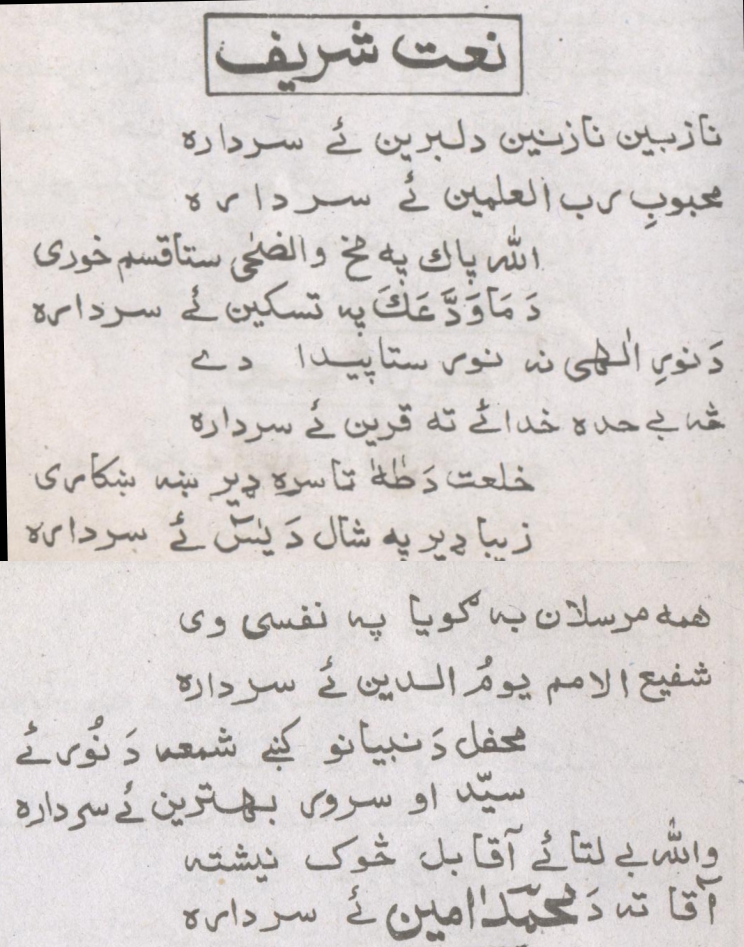 نعت شریف
نازبین نازنین دلبرین ئے سرداره
محبوبِ رب العلمین ئے سرداره
الله پاك په مخ والضحٰی ستا قسم خوری
دَ مَا وَدَّعَكَ په تسکین ئے سرداره
دَ نورِ الٰهی نه نور ستا پیدا دے
څه بے حده خدائے ته قرین ئے سرداره
خلعت دَ طٰهٰ تا سره ډیر ښه ښکاری
زیبا ډیر په شال دَ یٰسٓ ئے سرداره
همه مرسلان به گویا په نفسی وی
شفیع الامم یومُ الدین ئے سرداره
محفل دَ نبیانو کښے شمعه دَ نُور ئے
سیّد او سرور بهترین ئے سرداره
والله بے لتائے آقا بل څوک نیشته
آقا ته دَ محمّد امین ئے سرداره